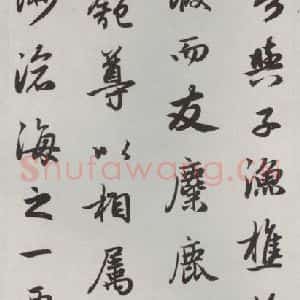 與子漁樵
蝦而友麋鹿
匏尊以相屬
渺滄海之一粟
Shufawang.cn